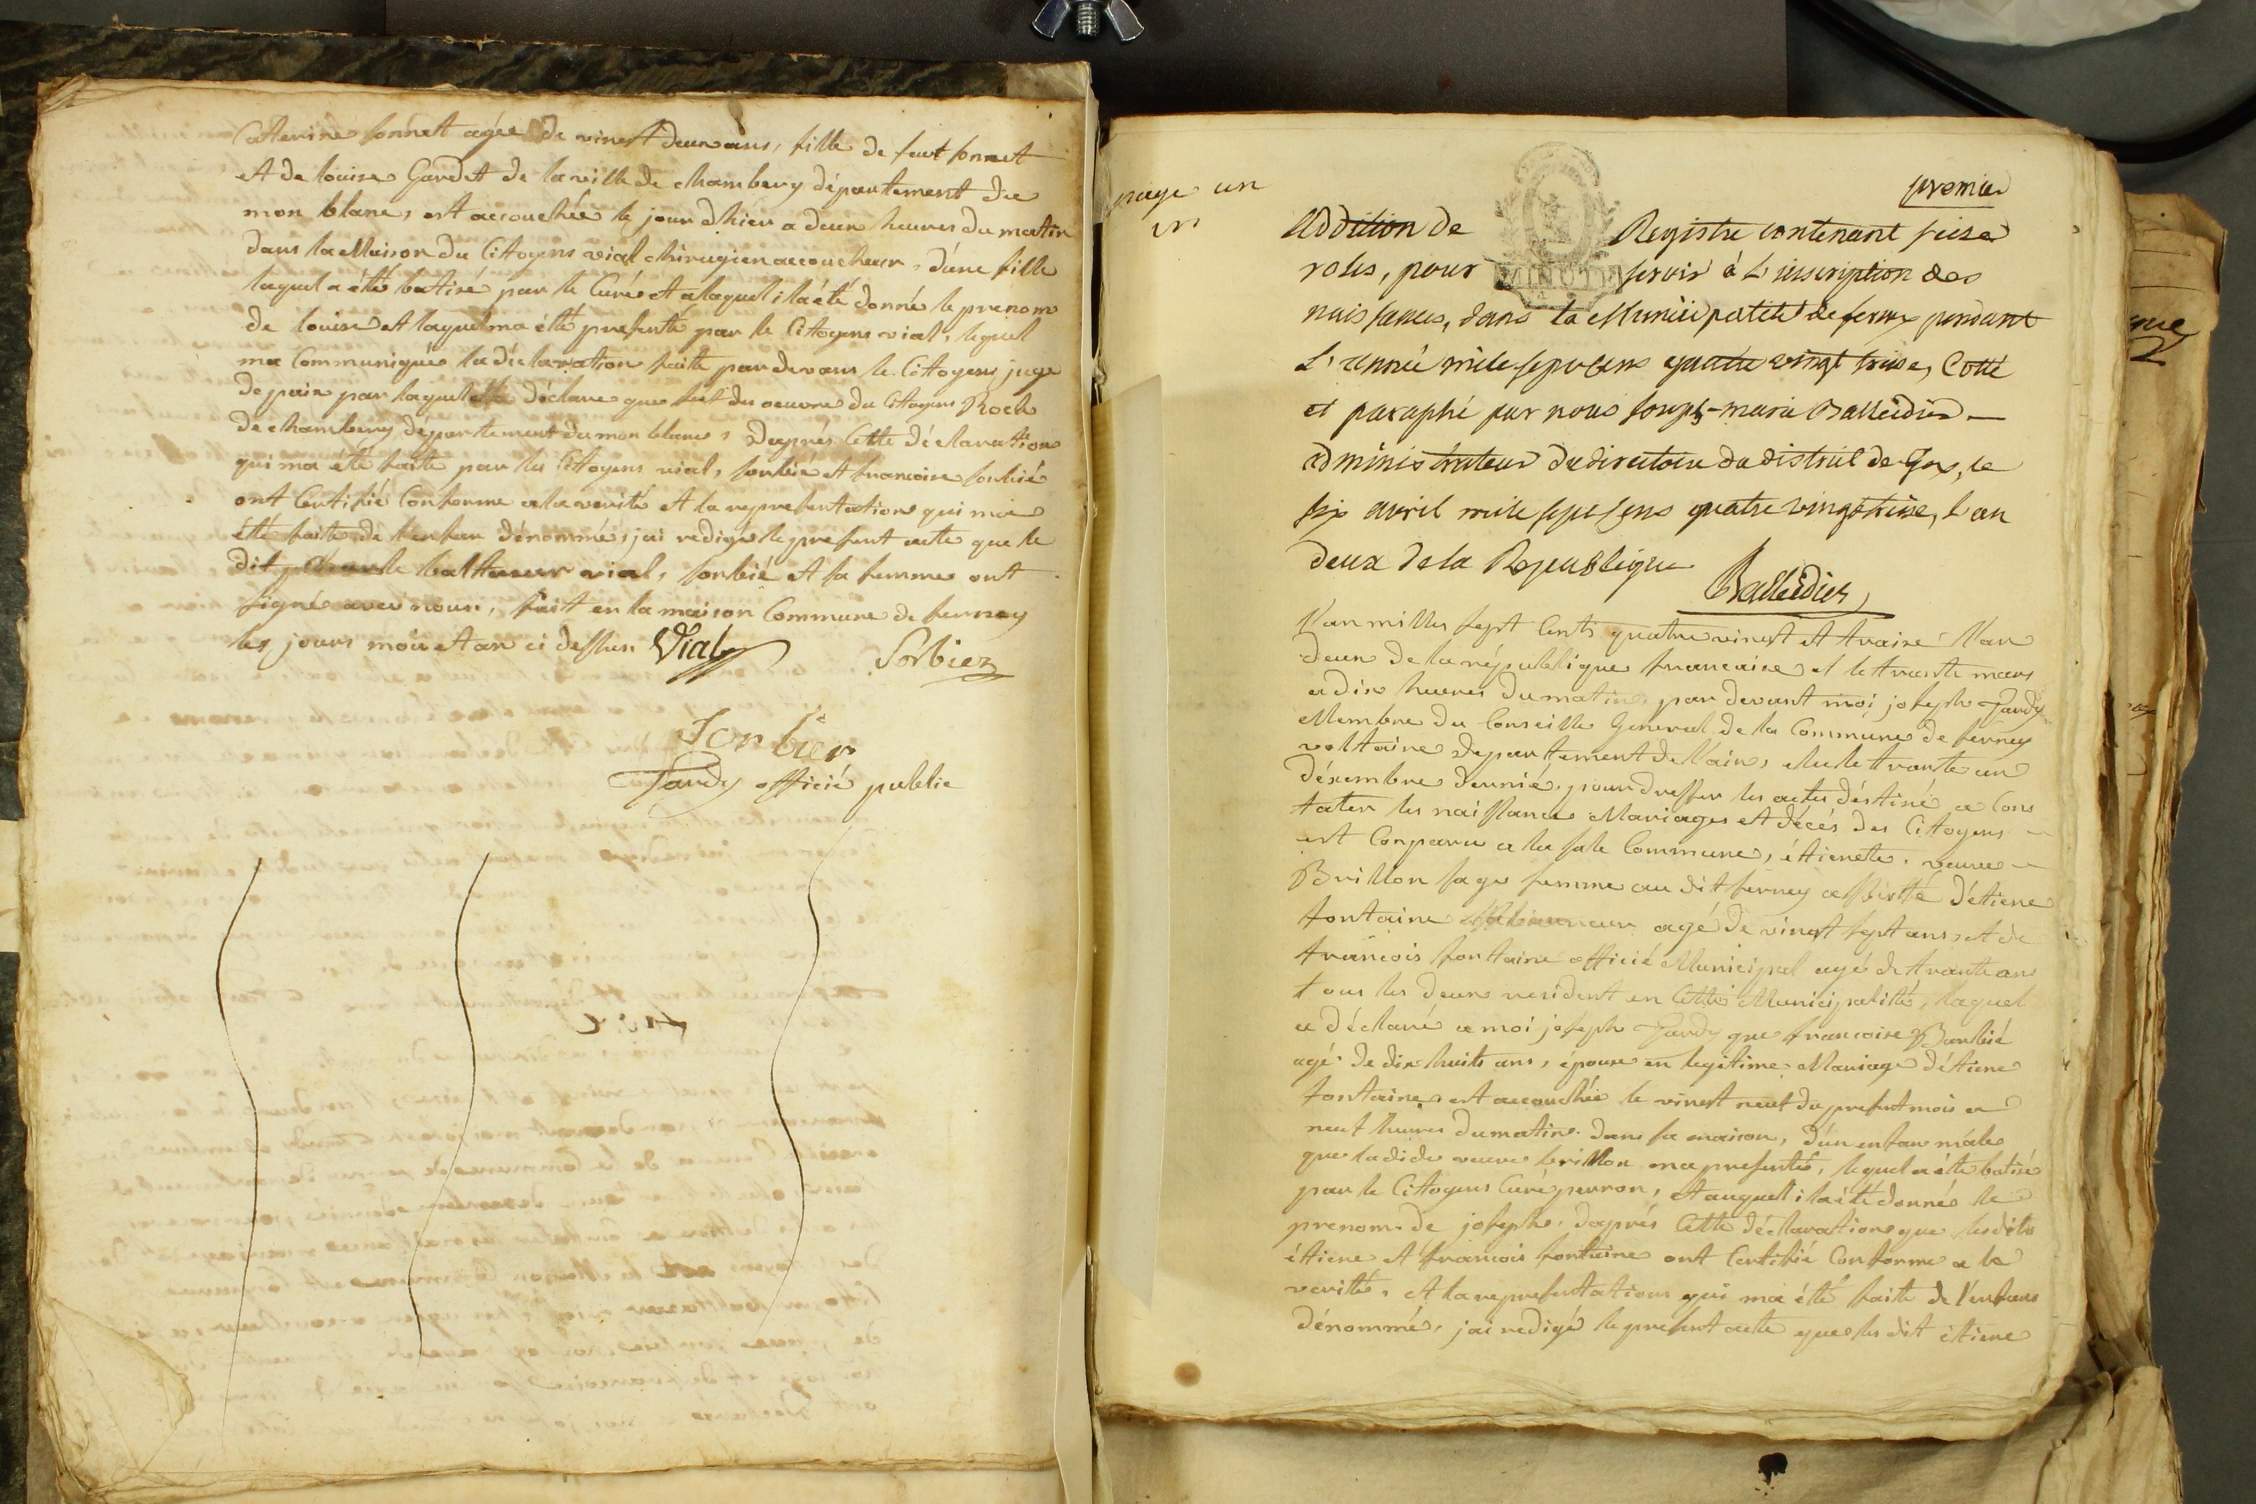 Catterine sonnet agée de vinest deux ans, fille de feut sonnet
et de louise Gardet de la ville de chambery département du
mon blanc, est accouchée le jour dhier a deux heures du matin
dans la Maison du Cittoyens vial chirugien accoucheur, dune fille
laquel a été batisé par le Curé et alaquel il a été donné le prenom
de louise et laquel ma été présenté par le Cittoyens vial, lequel
ma Communiqué la déclaration faitte par devans le Cittoyens juge
de paix par laquel elle déclare que cest du oeuvre du Cittoyens Roch
de chambery département du mon blanc, daprès Cette déclaration
qui ma été faitte par les Cittoyens vial, sorbié et francoise sorbié
ont Certifié Conforme a la verité et la representation qui ma
été faitte de l'enfan dénommé, jai redigé le present acte que le
dit balttasar vial, sorbié et sa femme ont
signé avec nous, fait en la maison Commune de ferney
les jours mois et an ci dessus Vial Sorbiez
Sorbier
Jandy officié public
page un
premier
Addition de Registre contenant seize
roles, pour MINUTE servir à L'inscription des
naissances, dans la Municipalité de ferney pendant
L'année mile sept cens quatre vingt treise, Cotté
et paraphé par nous Joseph-marie Balleidier
administrateur du directoire du district de Gex, le
six avril mile sept sens quatre vingt treise, l'an
deux de la Republique
Balleidier
L'an milles sept Cents quatre vinest et traise l'an
deux de la république francaise et le trante mars
a dix heures du matin, par devant moi joseph Jandy
Membre du Conseille General de la Commune de ferney
voltaire département de l'ain, élu le trante un
désembre dernié, pour dresser les actes déstiné a Cons
tater les naissances Mariages et décés des Cittoyens
est Conparu a la sale Commune, éttienete, veuve
Brillon sage femme au dit ferney assisté d'étiene
fontaine agé de vinest sept ans, et de
francois fontaine officié Municipal agé de trante ans
tous les deux resident en Cette Municipalité, laquel
a déclaré a moi joseph Jandy que francoise Barbié
agé de dix huits ans, épouse en legitime Mariage d'étiene
fontaine, est accouchée le vinest neuf du present mois a
neuf heures du matin dans sa maison, d'un enfan mâle
que la dide veuve brillon ma presenté, lequel a été batisé
par le Cittoyens Curé perron, et auquel il a été donné le
prenom de joseph, daprés Cette déclaration que les dits
étiene et francois fontaine ont Certifié Conforme a la
verité, et la representations qui ma été faite de l'enfans
dénommé, jai redigé le present acte que les dit étiene